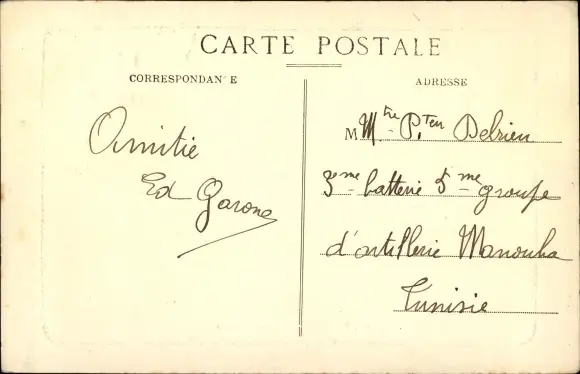 CARTE POSTALE
CORRESPONDANCE
ADRESSE
Amitié
Ed Garone
M Mtre Pten Delrieu
3me batterie 5me groupe
d'artillerie Manouba
Tunisie